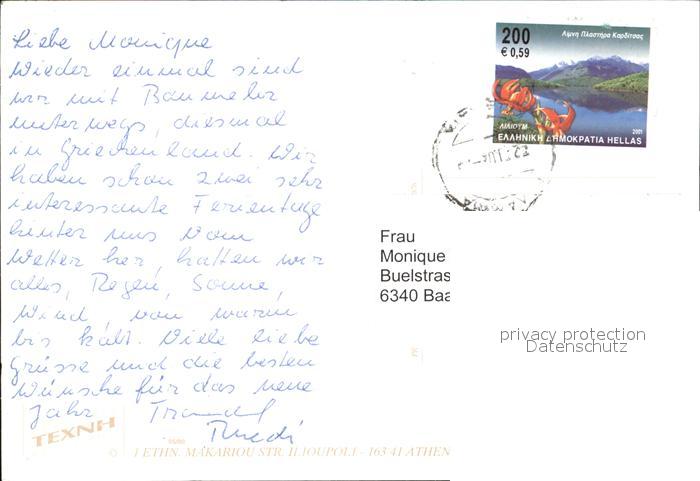 Liebe Monique
Wieder einmal sind
wir mit Baumeler
unterwegs, diesmal
in Griechenland. Wir
haben schon zwei sehr
interessante Ferientage
hinter uns vom
Wetter her, hatten wir
alles, Regen, Sonne,
Wind, von warm
bis kalt. Viele liebe
Grüsse und die besten
Wünsche für das neue
Jahr
Ruedi
200
€ 0,59
Λίμνη Πλαστήρα Καρδίτσας
ΛΙΛΙΟΥΜ
2001
ΕΛΛΗΝΙΚΗ ΔΗΜΟΚΡΑΤΙΑ HELLAS
Frau
Monique
Buelstras
6340 Baa
privacy protection
Datenschutz
ΤΕΧΝΗ
1 ETHN. MAKARIOU STR. ILIOUPOLI - 163 41 ATHEN